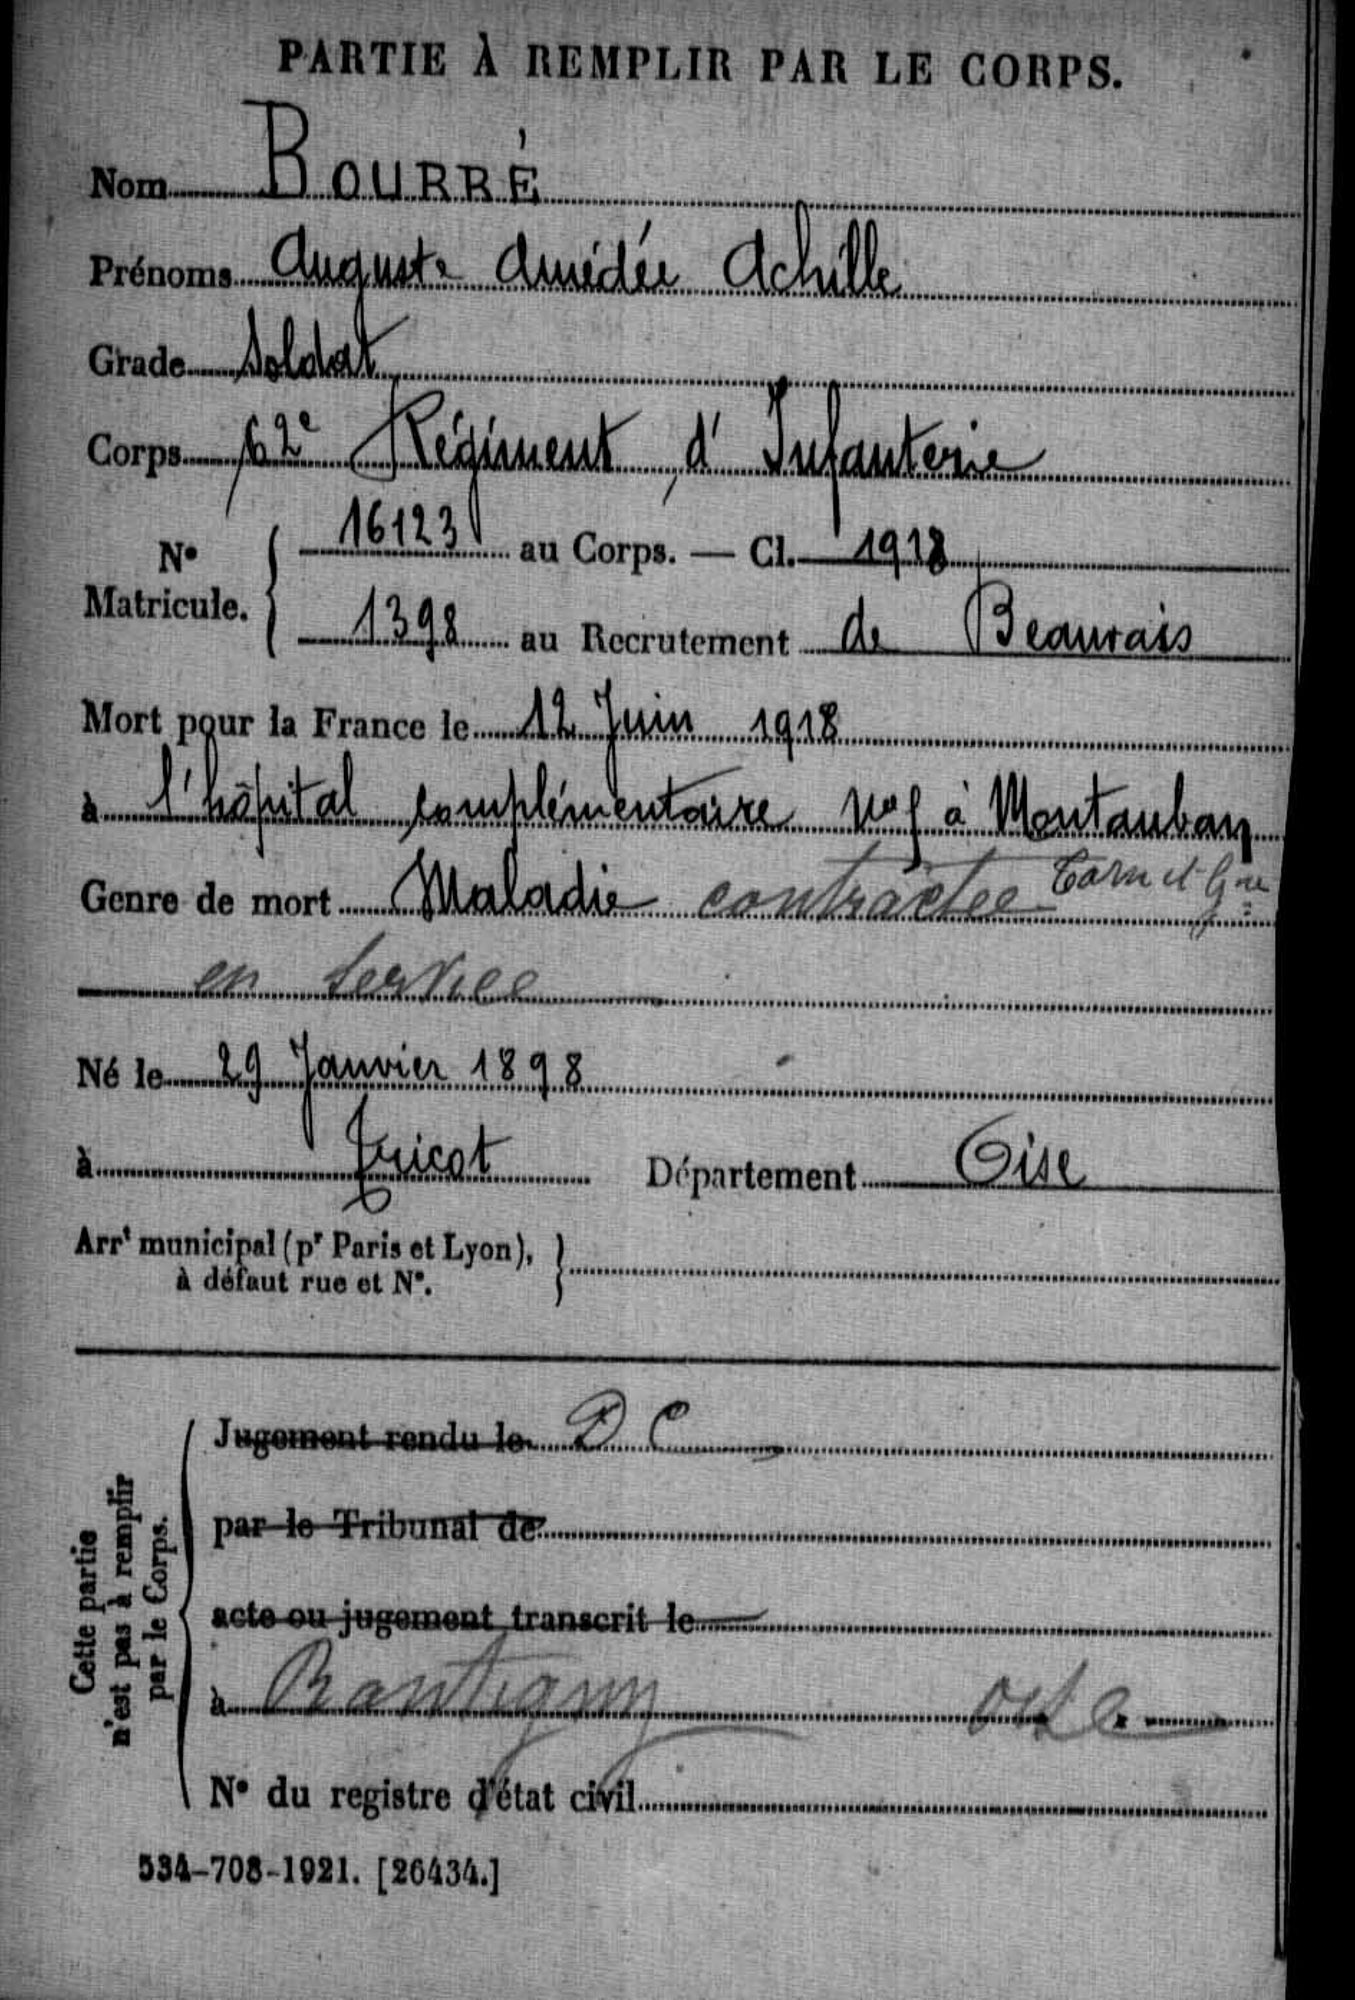 PARTIE À REMPLIR PAR LE CORPS.
Nom BOURRÉ
Prénoms Auguste Amédée Achille
Grade Soldat
Corps 62e Régiment d'Infanterie
N° Matricule. { 16123 au Corps. — Cl. 1918
1398 au Recrutement de Beauvais
Mort pour la France le 12 Juin 1918
à l'hôpital complémentaire à Montauban
Tarn et Gne
Genre de mort Maladie contractée
en service
Né le 29 Janvier 1898
à Tricot Département Oise
Arrt municipal (pr Paris et Lyon), }
à défaut rue et N°.
Cette partie
n'est pas à remplir
par le Corps.
Jugement rendu le D C
par le Tribunal de
acte ou jugement transcrit le
à Rantigny Oise
N° du registre d'état civil
534-708-1921. [26434.]